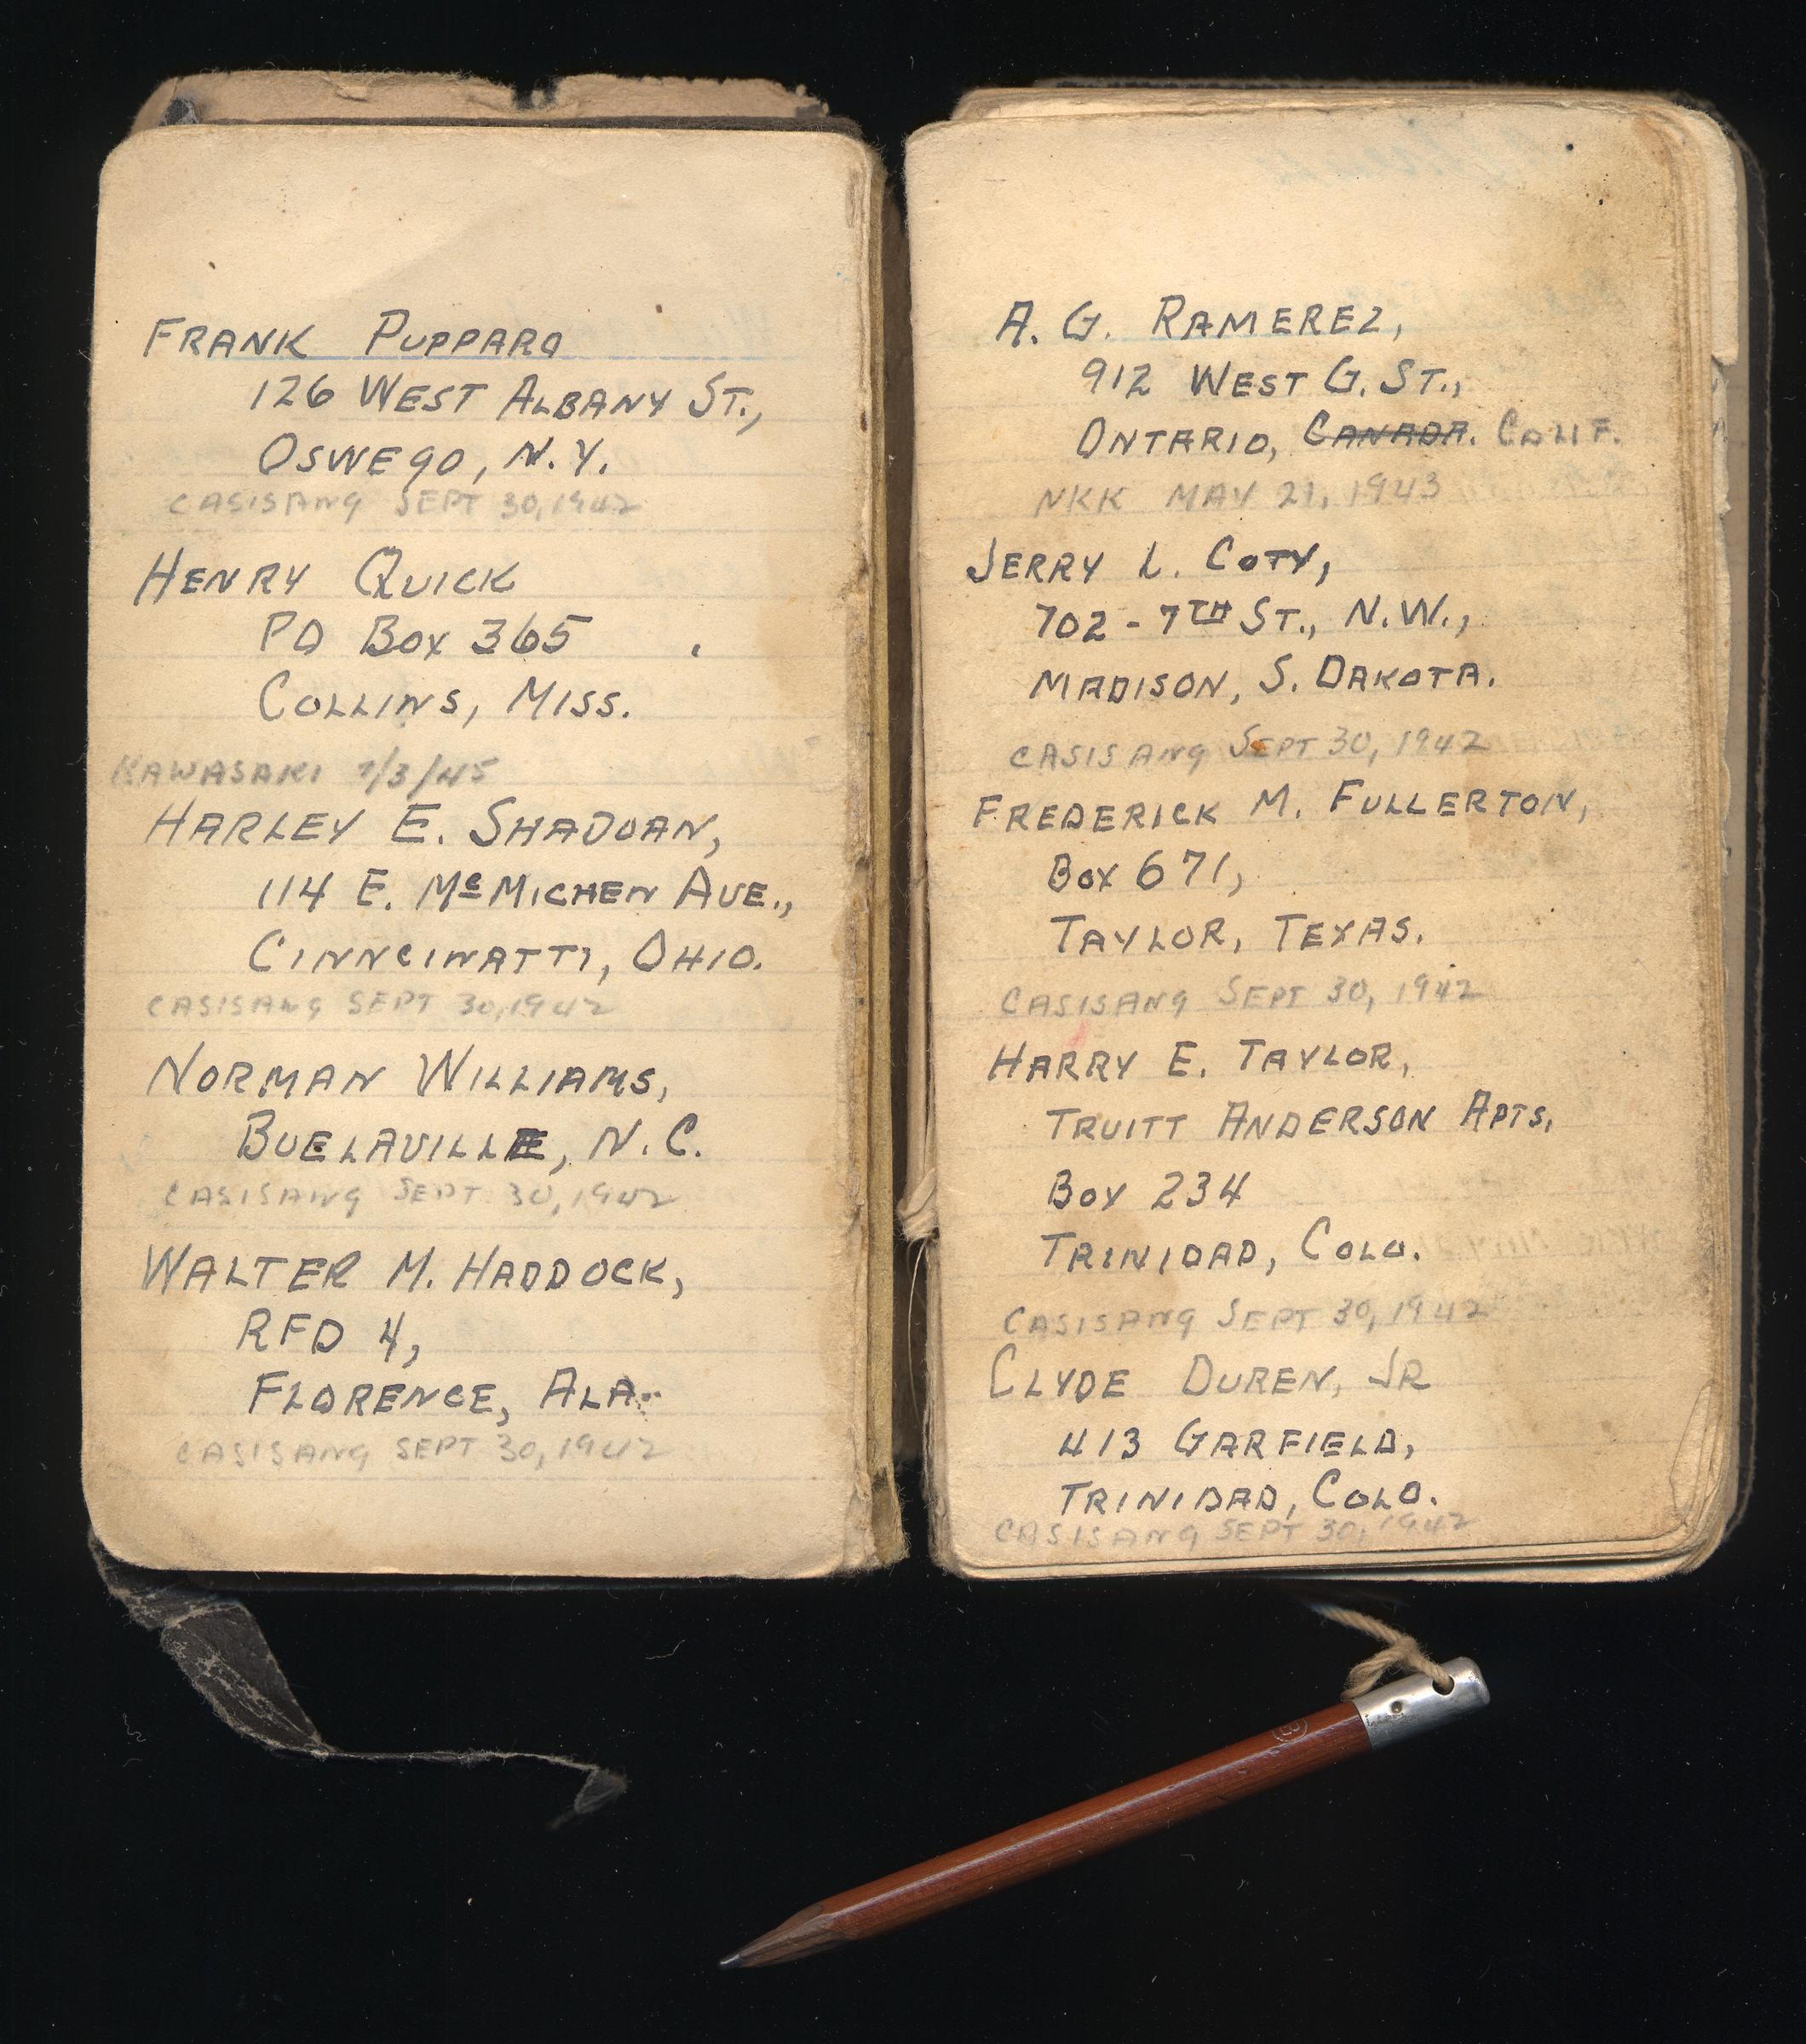 FRANK PUPPARO
126 WEST ALBANY ST.,
OSWEGO, N.Y.
CASISANG SEPT 30, 1942
HENRY QUICK
PO BOX 365
COLLINS, MISS.
KAWASAKI 7/3/45
HARLEY E. SHADOAN,
114 E. McMICHEN AVE.,
CINNCINATTI, OHIO.
CASISANG SEPT 30, 1942
NORMAN WILLIAMS,
BUELAVILLE, N.C.
CASISANG SEPT 30, 1942
WALTER M. HADDOCK,
RFD 4,
FLORENCE, ALA.
CASISANG SEPT 30, 1942
A. G. RAMEREZ,
912 WEST G. ST.,
ONTARIO, CANADA. CALIF.
NKK MAY 21, 1943
JERRY L. COTY,
702 - 7TH ST., N.W.,
MADISON, S. DAKOTA.
CASISANG SEPT 30, 1942
FREDERICK M. FULLERTON,
BOX 671,
TAYLOR, TEXAS.
CASISANG SEPT 30, 1942
HARRY E. TAYLOR,
TRUITT ANDERSON APTS.
BOX 234
TRINIDAD, COLO.
CASISANG SEPT 30, 1942
CLYDE DUREN, JR
413 GARFIELD,
TRINIDAD, COLO.
CASISANG SEPT 30, 1942